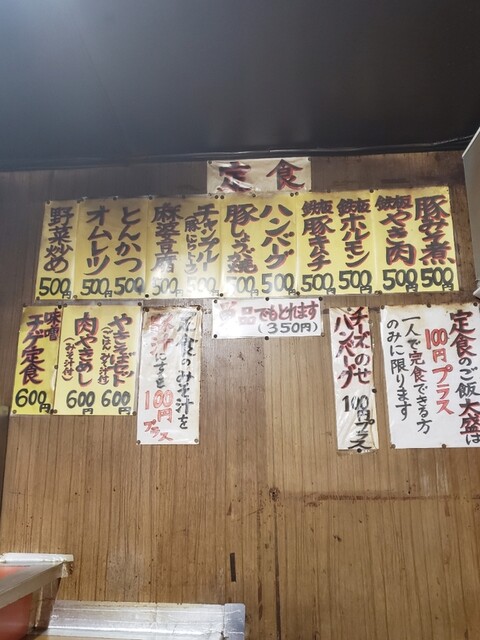 定食
豚生姜煮
500円
鉄板やき肉
500円
鉄板ホルモン
500円
鉄板豚キムチ
500円
ハンバーグ
500円
豚しょうが焼
500円
チャンプルー
500円
麻婆豆腐
500円
とんかつ
500円
オムレツ
500円
野菜炒め
500円
定食のご飯大盛は
100円プラス
一人で完食できる方
のみに限ります
チーズのせ
ハンバーグ
100円プラス
単品でもとれます
(350円)
定食のみそ汁を
100円
プラス
やきそばセット
(ごはん、みそ汁付)
600円
肉やきめし
(みそ汁付)
600円
味噌
チゲ定食
600円